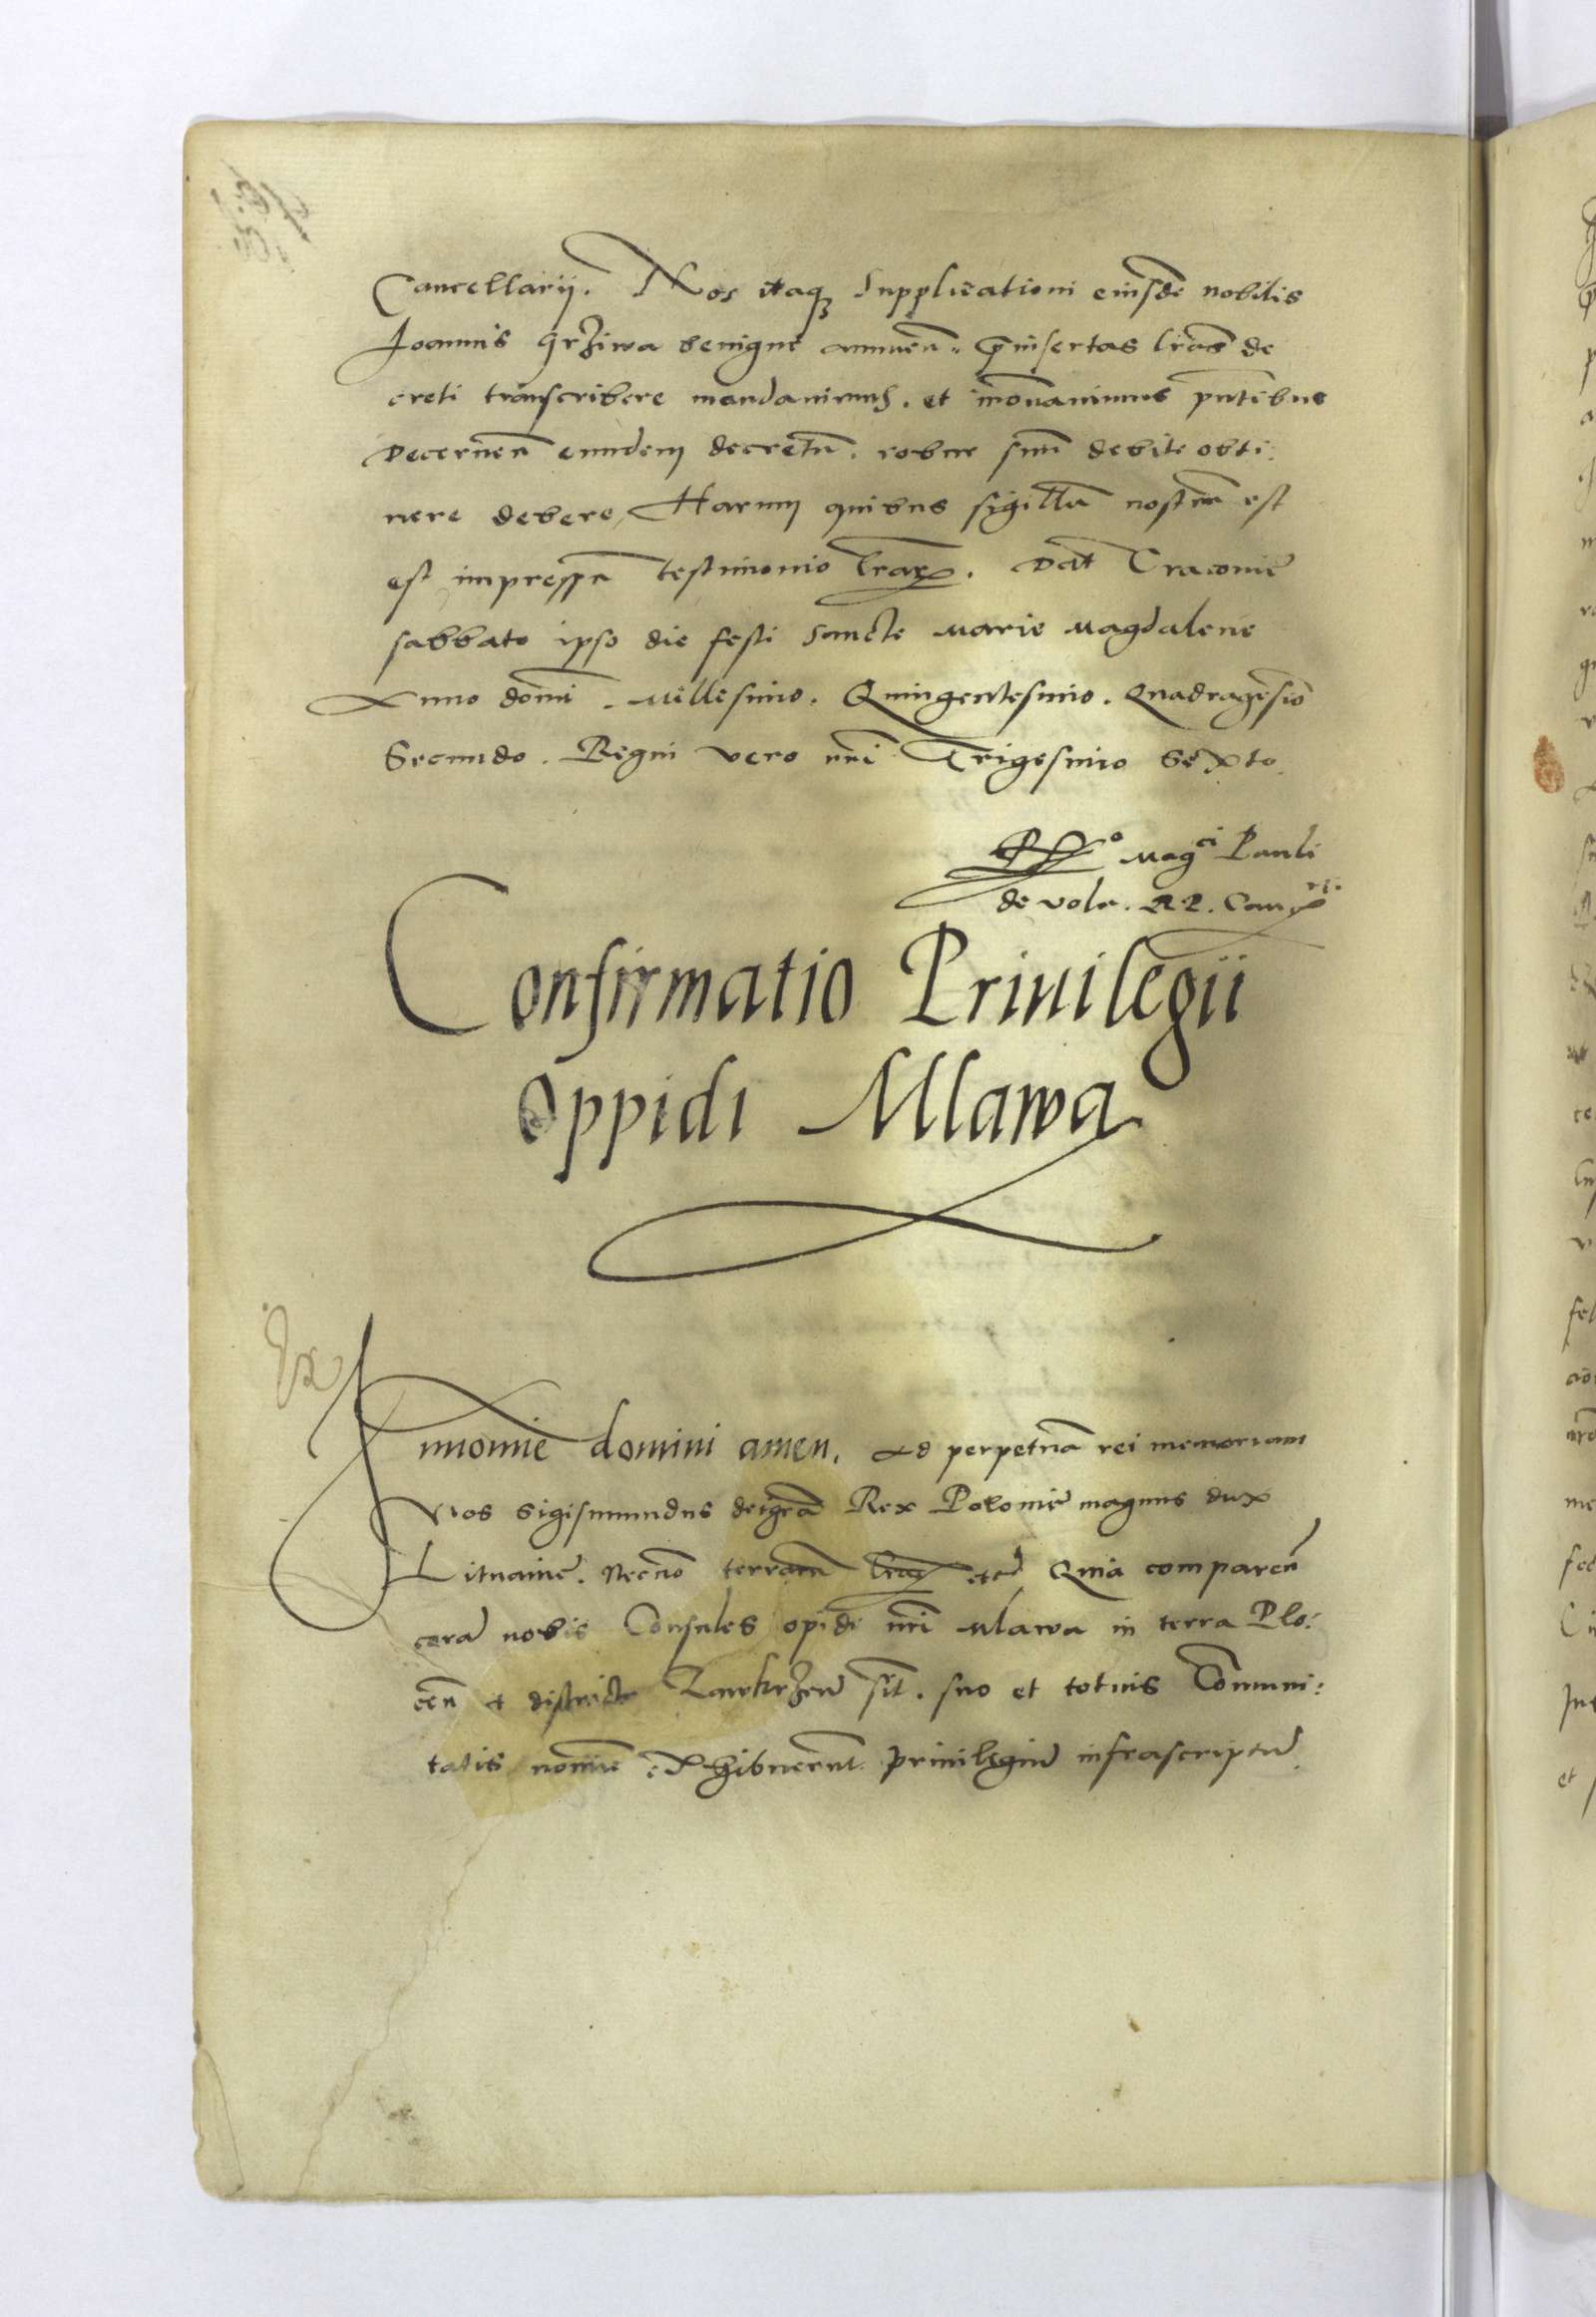 Cancellarij. Nos itaq3 Supplicationi eiusdē nobilis
Joannis Grziwa benigne annuen. p̄insertas lr̄as de
creti transcribere mandauimus. et innouauimus pn̄tibus
Decernen̄ eundem decretū. robur suū debite obti:
nere debere, Harum quibus sigillū nostrū est
est impressū testimonio lr̄arꝝ. Dat Cracouiē
sabbato ipso die festi sancte Marie Magdalene
Anno domī. Millesimo. Quingentesimo. Quadragesīo
Secundo. Regni vero nr̄i Trigesimo Sexto.
Magci Pauli
de vola. R P. Canrii
Confirmatio Priuilegii
Oppidi Mlawa
In nomīe domini amen. Ad perpetuā rei memoriam
Nos Sigismundus dei gr̄a Rex Polonie magnus dux
Lituanie. Necnō terrarū etc Quia comparen̄
corā nobis Consules opidi nr̄i Mlawa in terra Plo:
cen̄ et districtu Zawkrzen̄ sit. suo et totius Communi:
tatis nomine exhibuerunt priuilegiū infrascriptū.